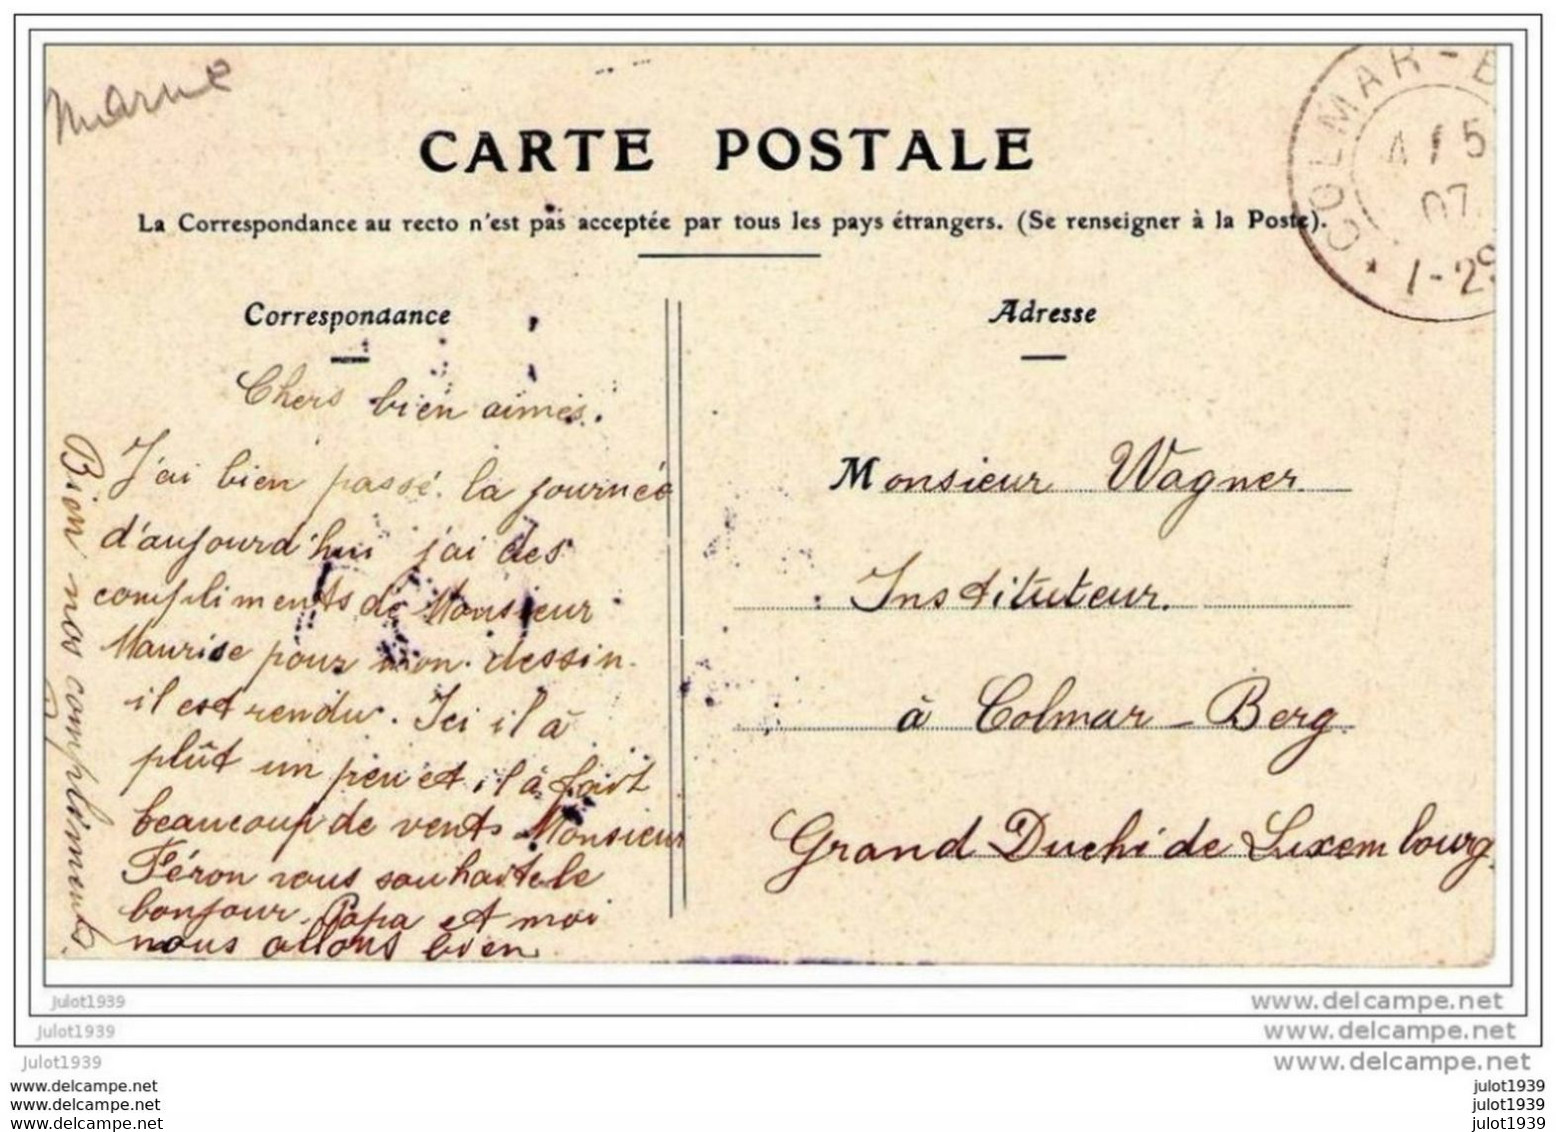 Marne
CARTE POSTALE
La Correspondance au recto n'est pas acceptée par tous les pays étrangers. (Se renseigner à la Poste).
COLMAR-B
4 / 5
07
* 1-2S
Correspondance
Chers bien aimés.
J'ai bien passé la journée
d'aujourd'hui j'ai des
compliments de Monsieur
Maurise pour mon dessin
il est rendu. Ici il à
plût un peu et il à fait
beaucoup de vents Monsieur
Féron vous souhaite le
bonjour. Papa et moi
nous allons bien
Bien nos compliments.
Adresse
Monsieur Wagner.
Instituteur.
à Colmar-Berg
Grand Duchi de Luxembourg.
Julot1939
www.delcampe.net
Julot1939
www.delcampe.net
Julot1939
www.delcampe.net
www.delcampe.net
julot1939
www.delcampe.net
julot1939
www.delcampe.net
julot1939